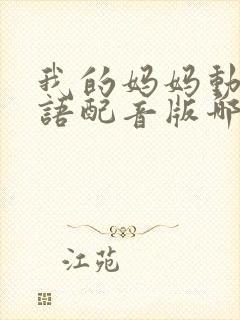 我的妈妈動
語配音版哪
江苑